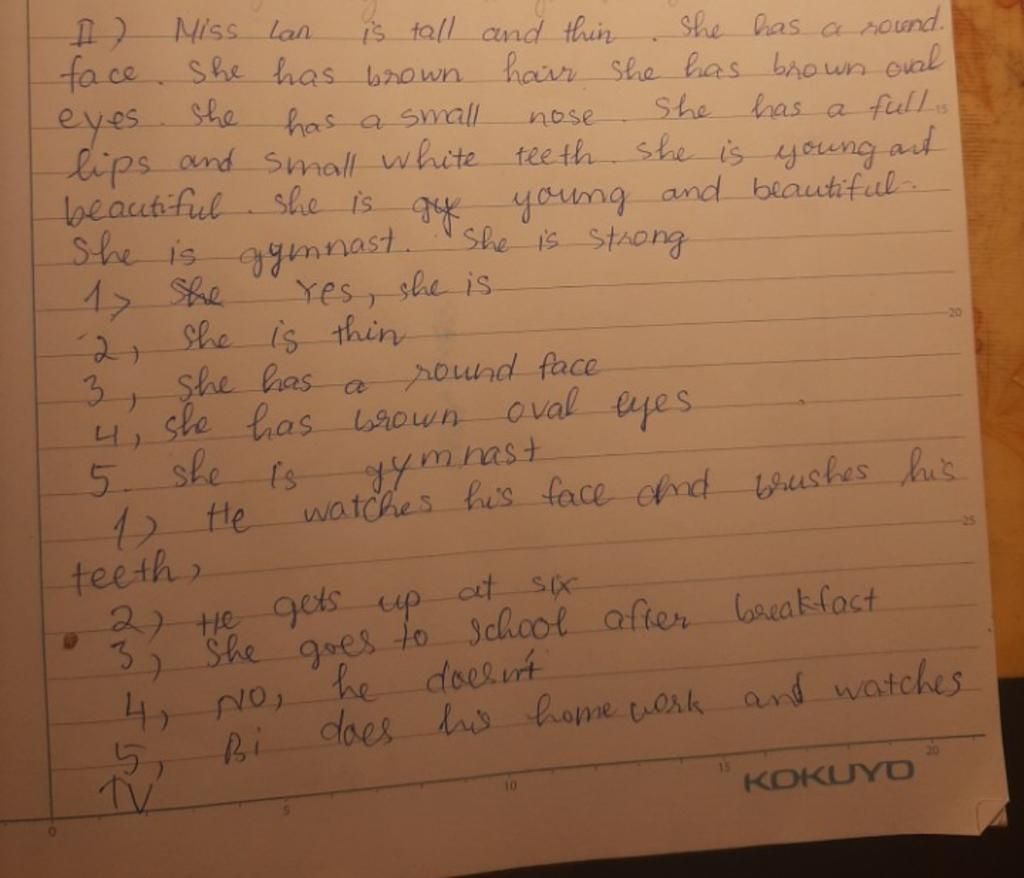 II) Miss Lan is tall and thin. She has a round.
face. She has brown hair she has brown oval
eyes. She has a small nose. She has a full 15
lips and small white teeth. She is young and
beautiful. She is young and beautiful.
She is gymnast. She is strong
1> She Yes, she is
2, She is thin 20
3, She has a round face
4, she has brown oval eyes
5. she is gymnast
1) He watches his face and brushes his
teeth, 25
2) He gets up at six
3, She goes to school after breakfast
4, NO, he doesn't
5, Bi does his homework and watches
TV
0 5 10 15 KOKUYO 20